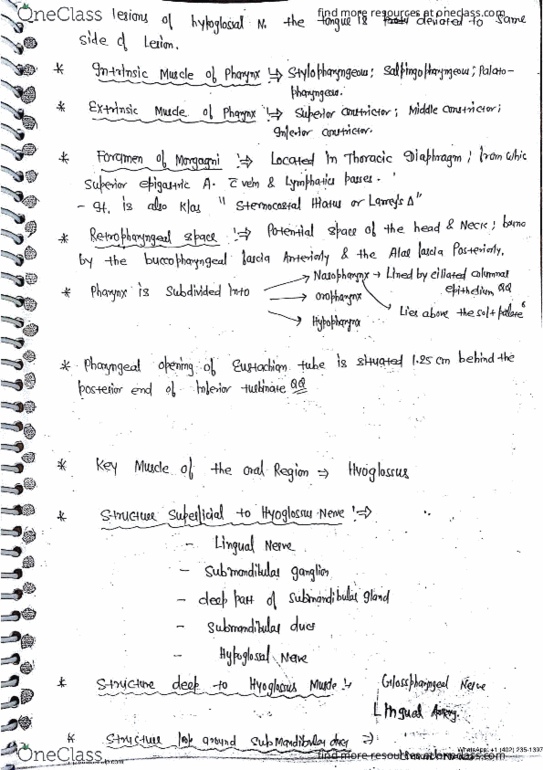 OneClass
find more resources at oneclass.com
lesions of hypoglossal N. the tongue is deviated to same
side of Lesion.
* Intrinsic Muscle of Pharynx :→ Stylopharyngeous; Salpingopharyngeous; Palato-
pharyngeous.
* Extrinsic Muscle of Pharynx :→ Superior constrictor; Middle constrictor;
Inferior constrictor.
* Foramen of Morgagni :⇒ Located In Thoracic Diaphragm; from whic
Superior epigastric A. c̄ vein & Lymphatics passes.
- It. is also K/as " Sternocostal Hiatus or Larrey's Δ"
* Retropharyngeal space :⇒ Potential space of the head & Neck;
by the buccopharyngeal fascia Anteriorly & the Alar fascia Posteriorly.
* Pharynx is Subdivided Into → Nasopharynx → Lined by ciliated columnar
epithelium QQ
→ oropharynx
Lies above the soft palate
→ Hypopharynx
* Pharyngeal opening of Eustachian tube is situated 1.25 cm behind the
posterior end of Inferior turbinate QQ
* Key Muscle of the oral Region ⇒ Hyoglossus
* Structure Superficial to Hyoglossus Nerve :⇒
- Lingual Nerve
- Submandibular ganglion
- deep part of Submandibular gland
- Submandibular duct
- Hypoglossal Nerve
* Structure deep to Hyoglossus Muscle :- Glossopharyngeal Nerve
Lingual Artery.
* Structure around Submandibular duct ⇒
OneClass
find more resources at oneclass.com
WhatsApp: +1 (402) 235-1397